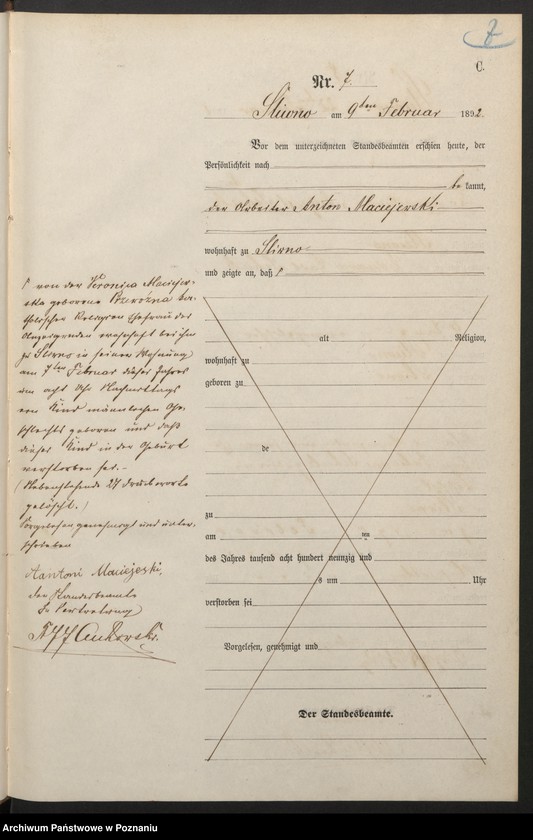 7
C.
Nr. 7.
Sliwno am 9ten Februar 1892
Vor dem unterzeichneten Standesbeamten erschien heute, der
Persönlichkeit nach
be kannt,
der Arbeiter Anton Maciejewski
wohnhaft zu Sliwno
und zeigte an, daß
von der Veronica Maciejew-
ska geborene ka-
tholischer Religion Ehefrau des
Anzeigenden wohnhaft bei ihm
zu Sliwno in seiner Wohnung
am 7ten Februar dieses Jahres
um acht Uhr Nachmittags
ein Kind männlichen Ge-
schlechts geboren und daß
dieses Kind in der Geburt
verstorben sei.-
(Nebenstehende 27 Druckworte
gelöscht.)
Vorgelesen genehmigt und unter-
schrieben
Aantoni Maciejeski.
Der Standesbeamte
In Vertretung
alt Religion,
wohnhaft zu
geboren zu
de
zu
am
des Jahres tausend acht hundert neunzig und
s um Uhr
verstorben sei
Vorgelesen, genehmigt und
Der Standesbeamte.
Archiwum Państwowe w Poznaniu